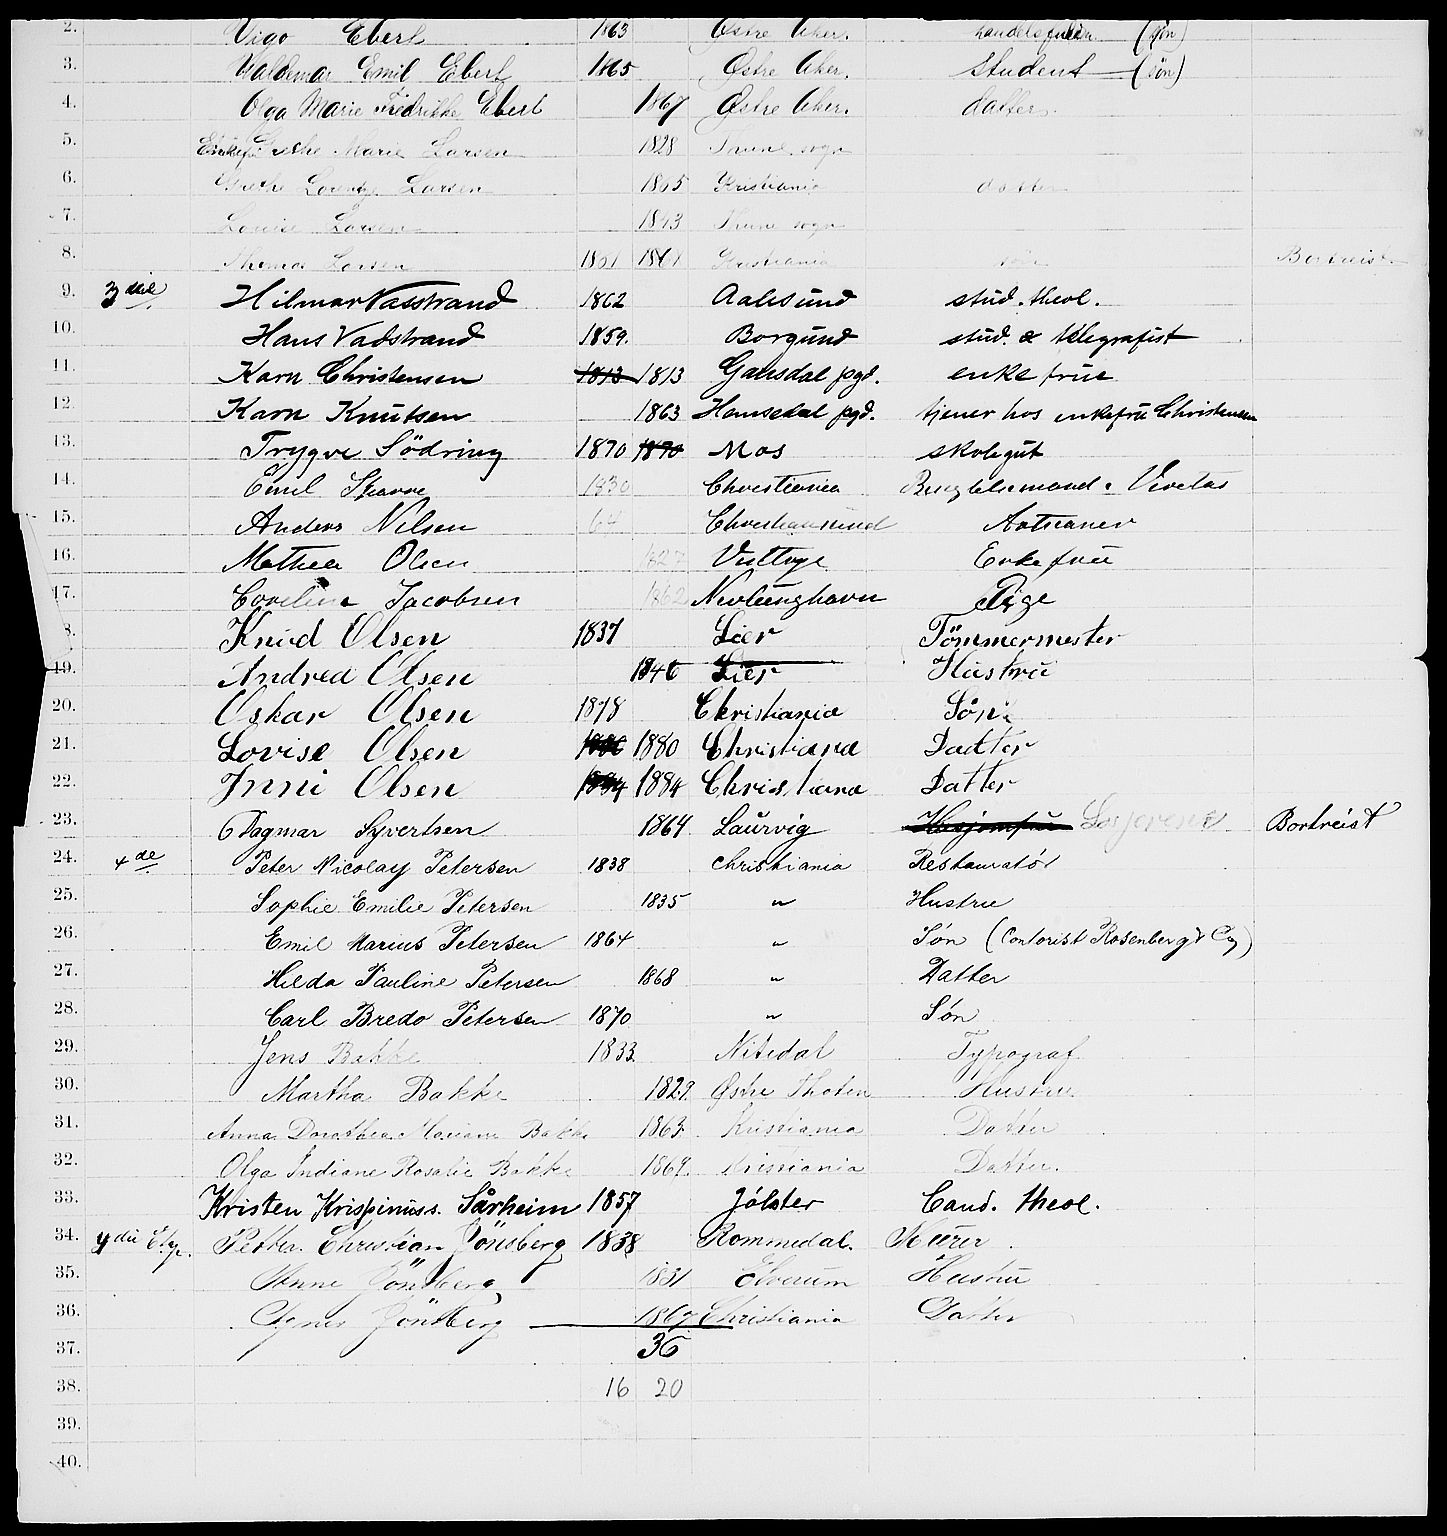 2. Vigo Ebert 1863 Østre Aker. (søn)
3. Valdemar Emil Ebert 1865 Østre Aker. Student (søn)
4. Olga Marie Fredrikke Ebert 1867 Østre Aker. datter.
5. Grethe Marie Larsen 1828 sogn
6. Grethe Lorentze Larsen 1865 Kristiania datter
7. Louise Larsen 1843 sogn
8. Thomas Larsen 1861 1861 Kristiania søn Bortreist
9. 3die Hilmar Vadstrand 1862 Aalesund stud. theol.
10. Hans Vadstrand 1859. Borgund stud. & telegrafist
11. Karn Christensen 1813 1813 Gausdal pgd. enkefrue
12. Karn Knutsen 1863 Hemsedal pgd. tjener hos enkefru Christensen
13. Trygve Södring 1870 1870 Mos skolegut
14. Emil 1830 Christiania Veritas
15. Anders Nilsen 64 Christiansund
16. Mathea Olsen 1827 Enkefrue
17. Coroline Jacobsen 1862 Nevlunghavn Pige
8. Knud Olsen 1837 Lier Tömmermester
19. Andrea Olsen 1846 Lier Hustru
20. Oskar Olsen 1878 Christiania Søn
21. Lovise Olsen 1880 1880 Christiana Dadter
22. Jnni Olsen 1884 1884 Christiana Datter
23. Dagmar Syvertsen 1864 Laurvig Losjerene Bortreist
24. 4de Peter Nicolay Petersen 1838 Christiania Restauratör
25. Sophie Emilie Petersen 1835 " Hustru
26. Emil Marius Petersen 1864 " Søn (Contorist Rosenberg & Cy)
27. Hilda Pauline Petersen 1868 " Datter
28. Carl Bredo Petersen 1870 " Søn
29. Jens Bakke 1833 Nitedal Typograf
30. Martha Bakke 1829. Østre Thoten Hustru
31. Anna Dorothea Mariane Bakke 1863 Kristiania Datter
32. Olga Indiane Rosalie Bakke 1869. Kristiania Datter.
33. Kristen Krispinuss. Sårheim 1857 Jölster Cand. theol.
34. 4die Etge. Petter Christian Jönsberg 1838 Rommedal. Murer
35. Anne Jönsberg 1831 Elverum Hustru
36. Agnes Jönsberg 1867 Christiania Datter
37. 36
38. 16 20
39.
40.